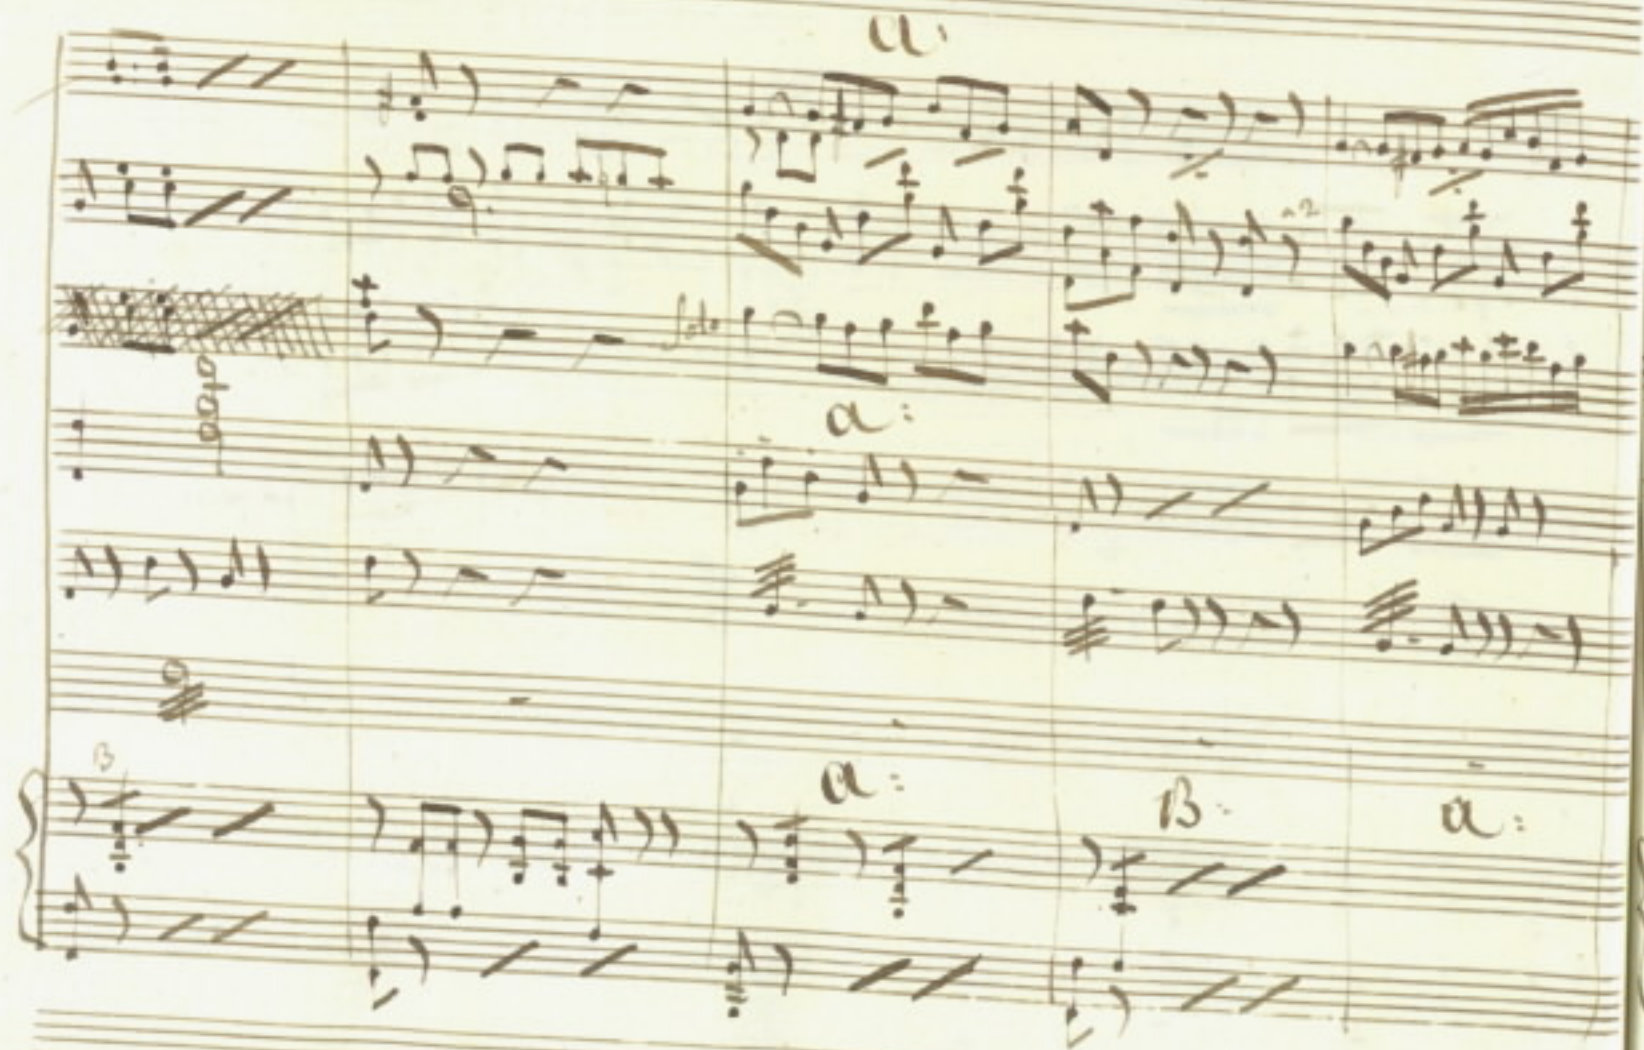 a:
solo
a:
B
a: B: a: